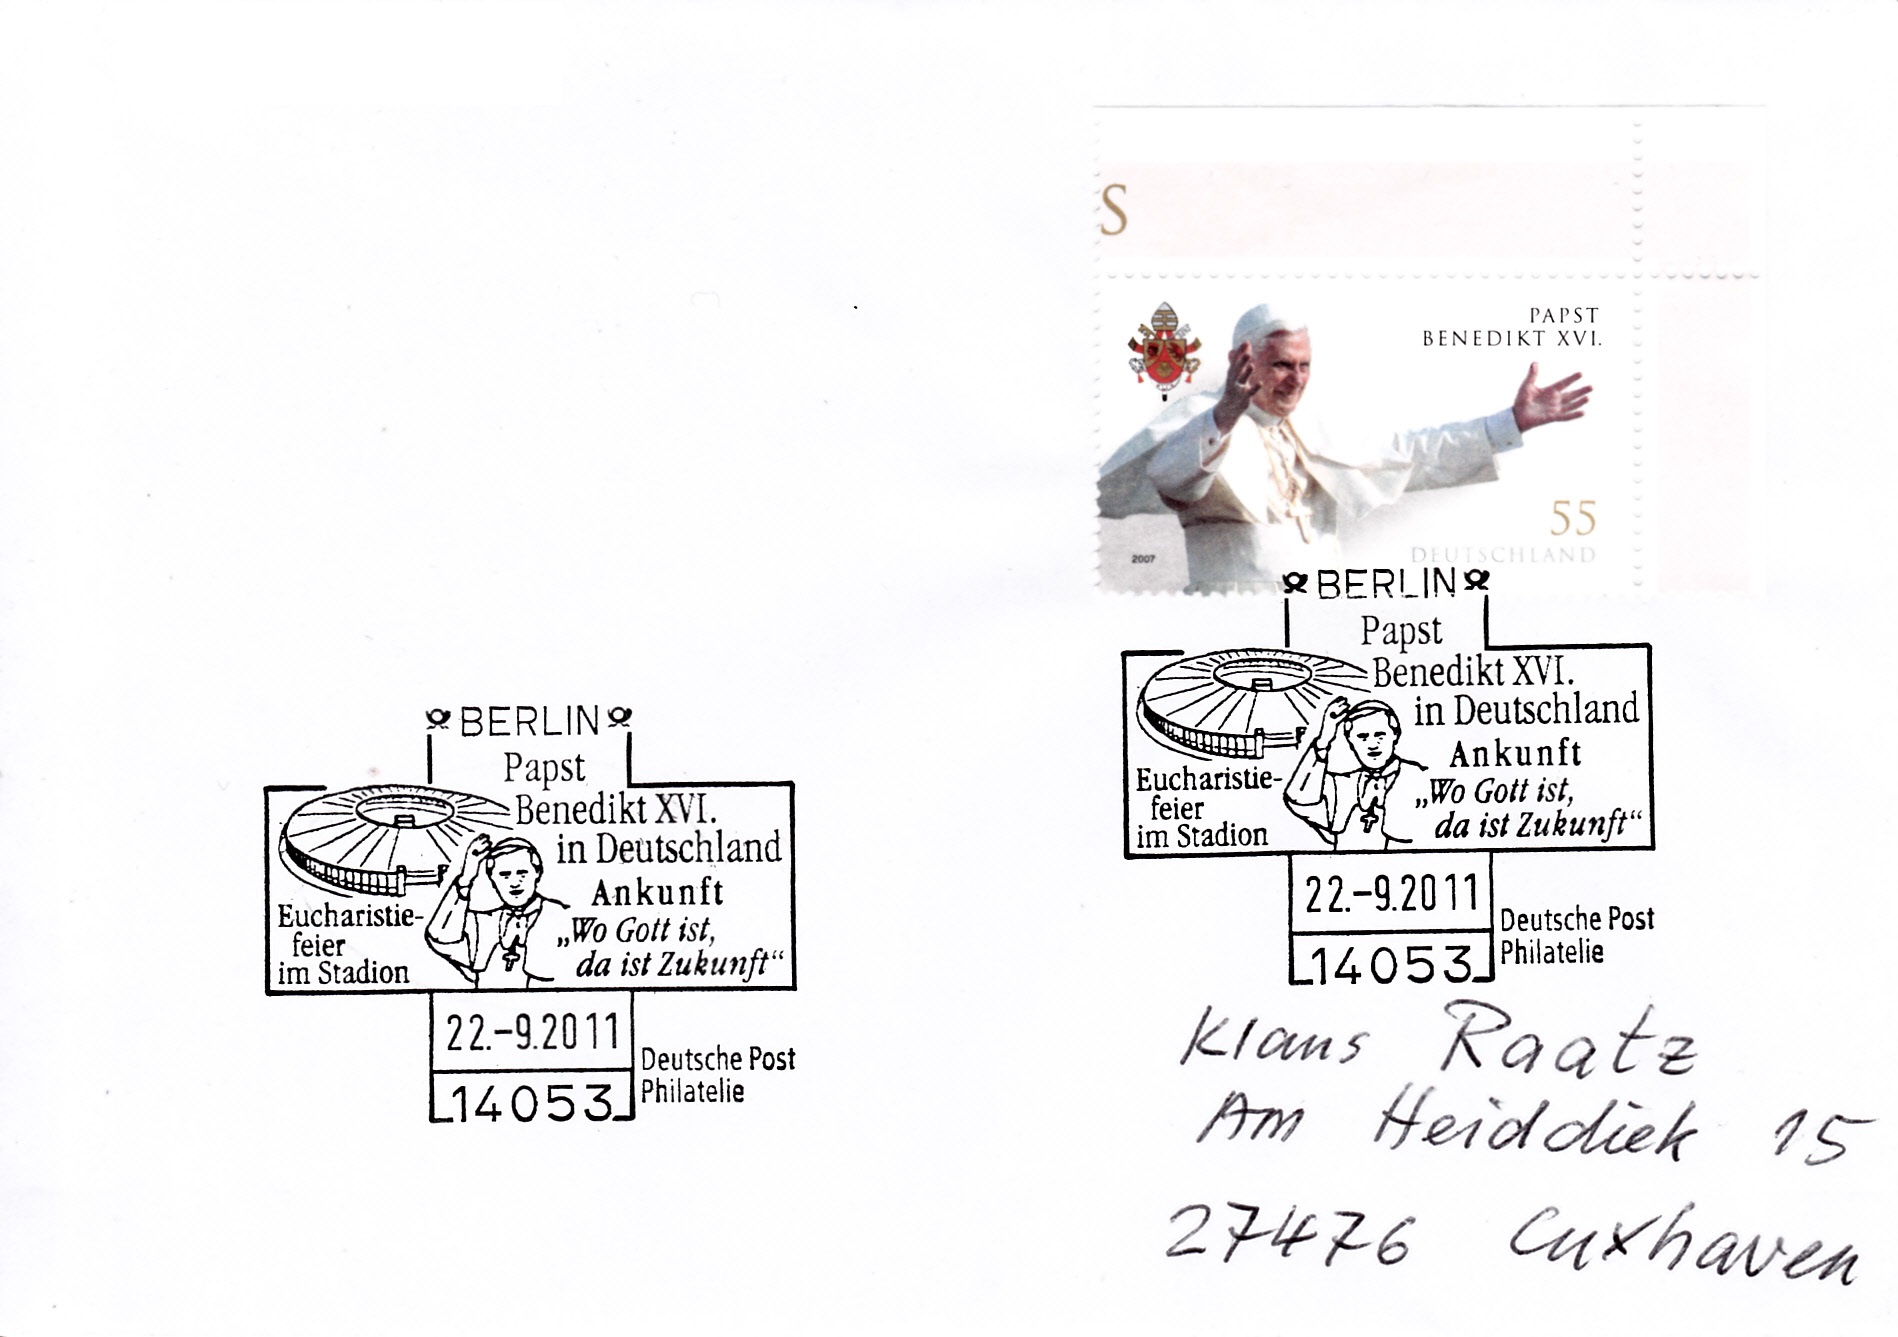 S
PAPST
BENEDIKT XVI.
55
2007
DEUTSCHLAND
BERLIN
Papst
Benedikt XVI.
in Deutschland
Ankunft
„Wo Gott ist,
da ist Zukunft“
Eucharistie-
feier
im Stadion
22.-9.2011
14053
Deutsche Post
Philatelie
BERLIN
Papst
Benedikt XVI.
in Deutschland
Ankunft
„Wo Gott ist,
da ist Zukunft“
Eucharistie-
feier
im Stadion
22.-9.2011
14053
Deutsche Post
Philatelie
Klaus Raatz
Am Heiddiek 15
27476 Cuxhaven